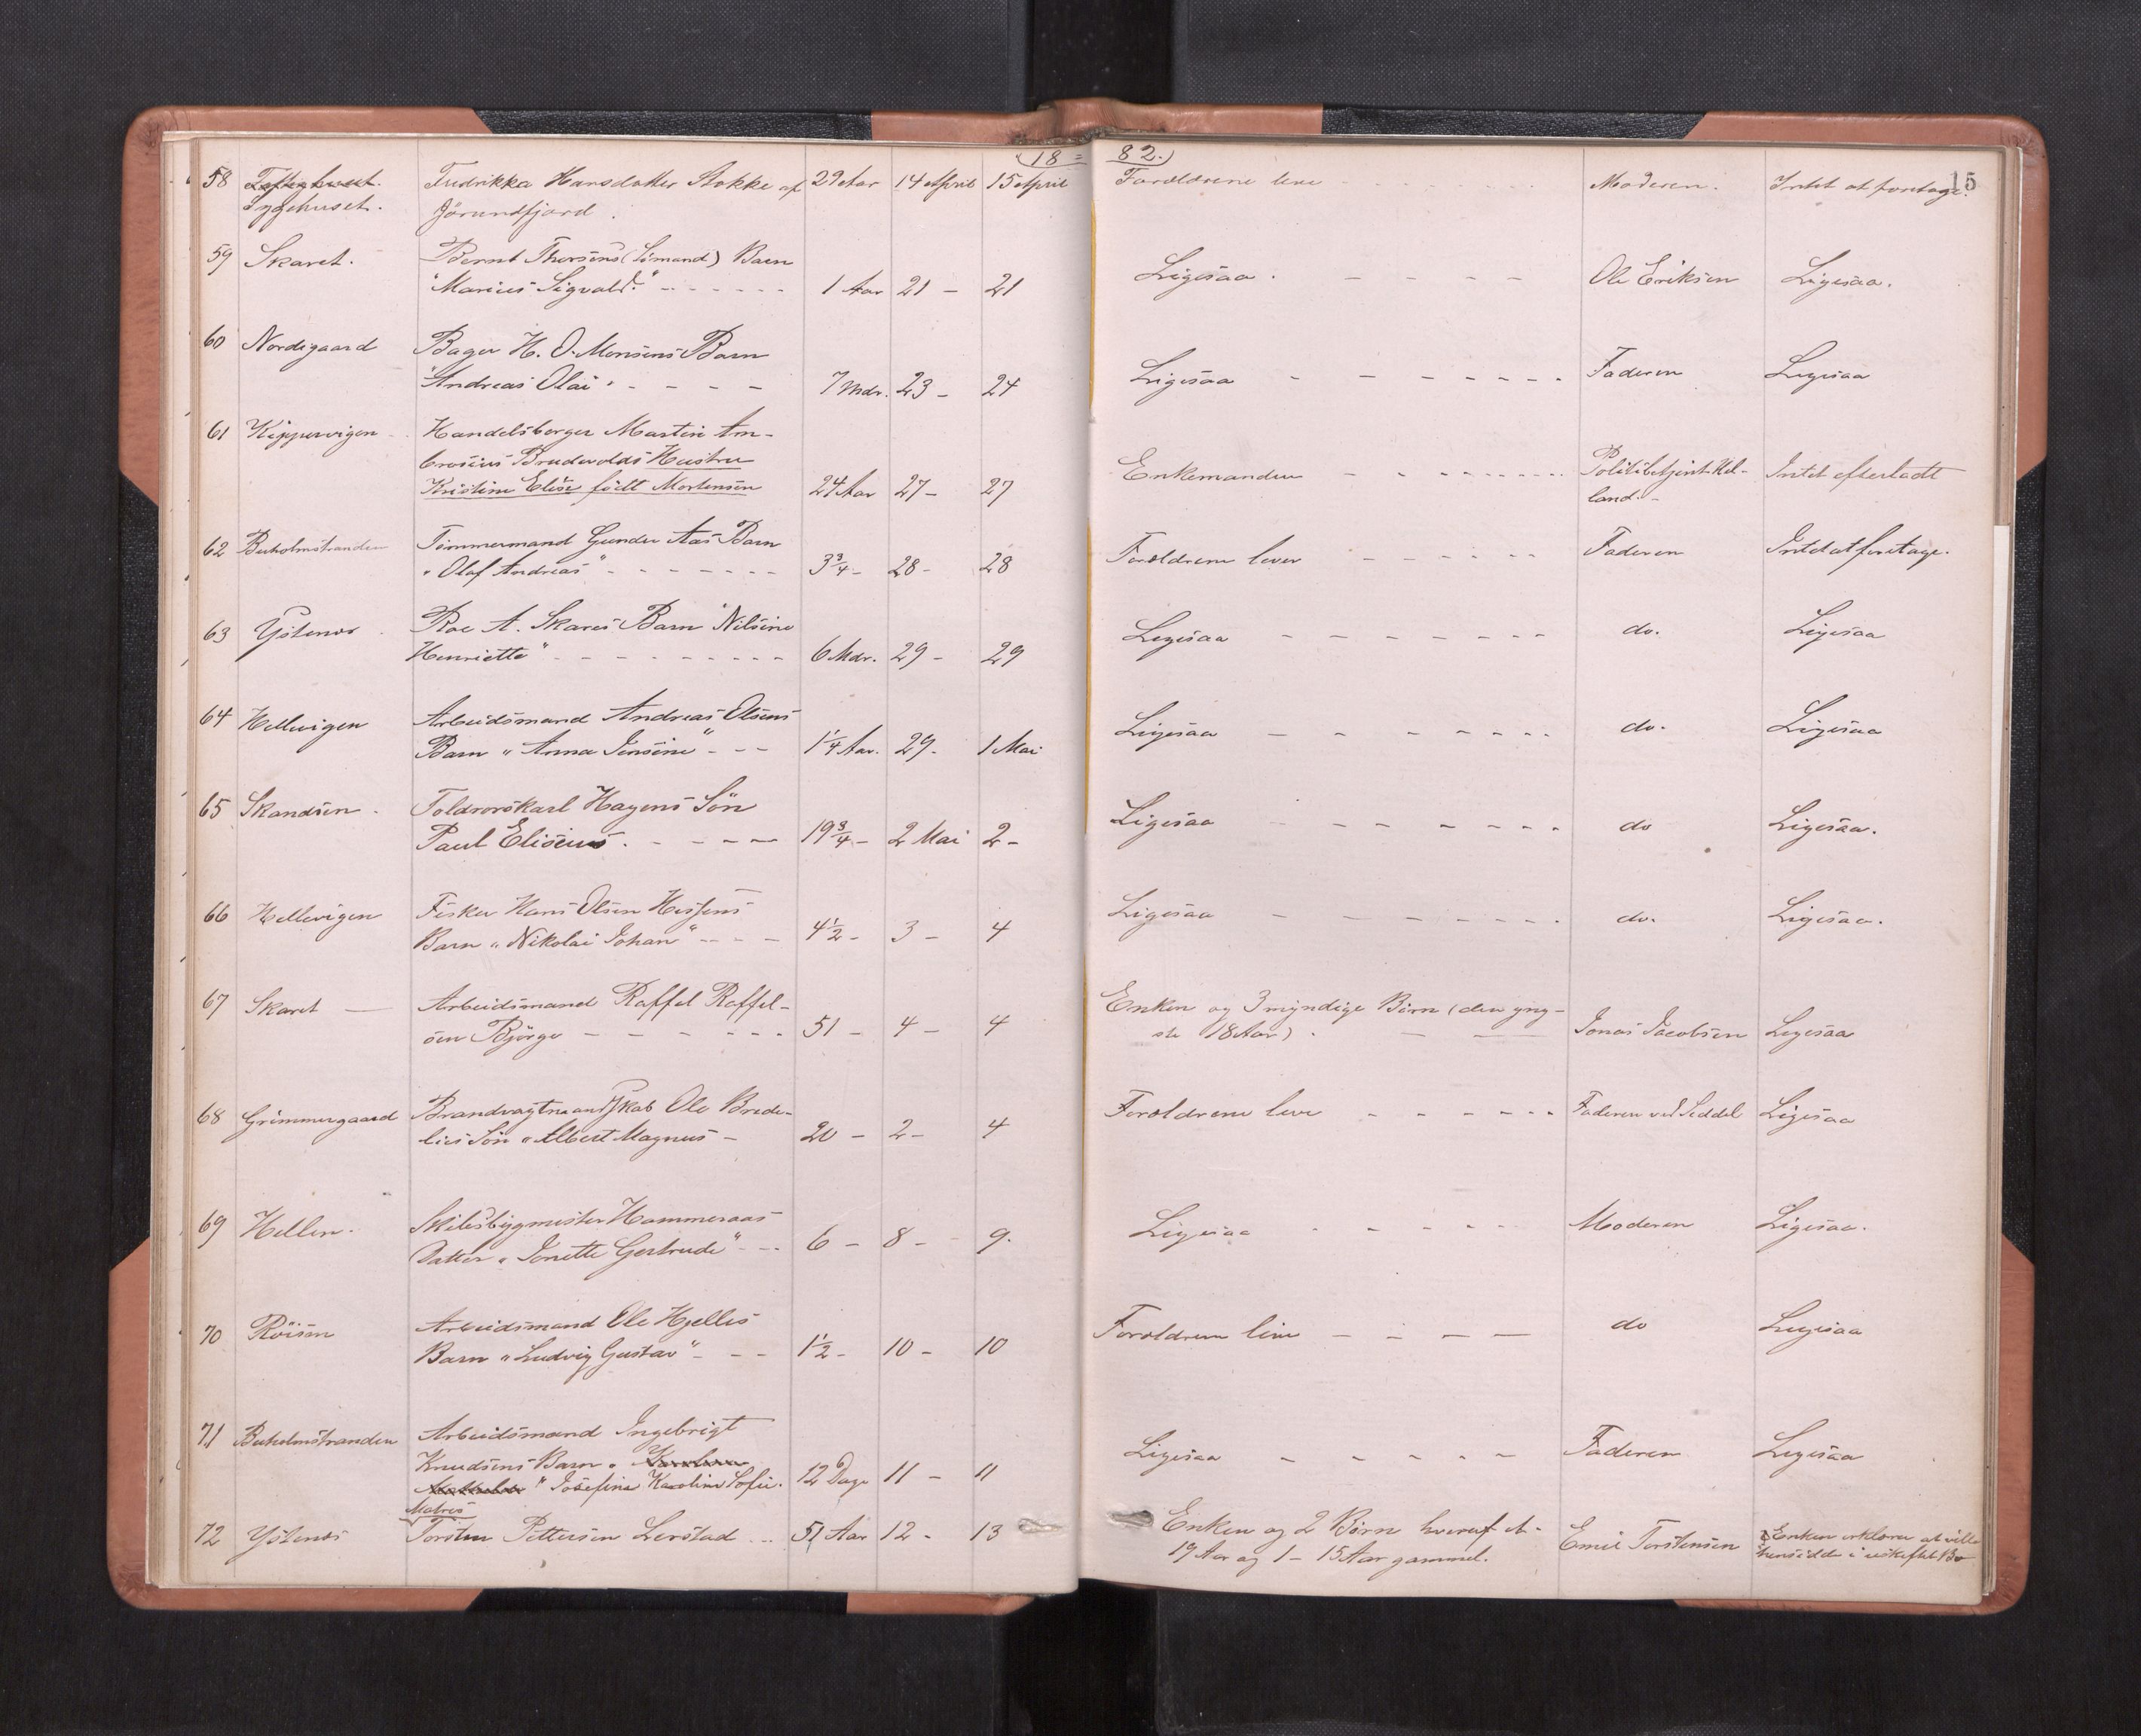 18 = 82.
15
58 Sygehuset. Fredrikka Hansdatter Stokke af 29 Aar 14 April 15 April Forældrene leve - - - - - - Moderen. Intet at foretage.
Jörundfjord.
59 Skaret. Bernt Thorsens (Sömand) Barn
"Marius Sigvald." - - - - - - 1 Aar 21 - 21 Ligesaa. - - - - Ole Eriksen Ligesaa.
60 Nordigaard Bager H. O. Monsens Barn
"Andreas Olai" - - - - - 7 Mdr. 23 - 24 Ligesaa - - - - - - - - Faderen Ligesaa
61 Kippervigen Handelsborger Martin Am-
brosius Brudevolds Hustru
Kristine Elise födt Mortensen 24 Aar 27 - 27 Enkemanden - - - - - - - - Politibetjent Hel- Intet efterladt
land. -
62 Buholmstranden Tömmermand Gunder Aas Barn
"Olaf Andreas" - - - - - - - 3 3/4 - 28 - 28 Forældrene lever - - - - - - Faderen Intet at foretage.
63 Ystenes Roe A. Skares Barn "Nilsine
Henriette" - - - - - - - - - - 6 Mdr. 29 - 29 Ligesaa - - - - - - - - do. Ligesaa
64 Hellevigen Arbeidsmand Andreas Olsens
Barn "Anna Jensine" - - - 1 1/4 Aar. 29. 1 Mai Ligesaa - - - - - - - - do. Ligesaa
65 Skandsen. Toldrorskarl Hagens Sön
Paul Eliseus. - - - - - 19 3/4 - 2 Mai 2 - Ligesaa - - - - - - - - do Ligesaa.
66 Hellevigen Fisker Hans Olsen Hessens
Barn "Nikolai Johan" - - - - 4 1/2 - 3 - 4 Ligesaa - - - - - - - - do. Ligesaa.
67 Skaret - Arbeidsmand Raffel Raffel- Enken og 3 myndige Börn (den yng-
sen Björge - - - - - - - 51 - 4 - 4 ste 18 Aar). - - Jonas Jacobsen Ligesaa
68 Grimmergaard Brandvagtmandskab Ole Brude- Forældrene leve - - - - - - Faderen ved Seddel Ligesaa
lies Sön "Albert Magnus - 20 - 2 - 4
69 Hellen. Skibsbygmester Hammeraas
Datter "Jonette Gertrude" - - - 6 - 8 - 9. Ligesaa - - - - - Moderen Ligesaa.
70 Röisen Arbeidsmand Ole Hjelles
Barn "Ludvig Gustav" - - - 1 1/2 - 10 - 10 Forældrene leve - - - - do Ligesaa
71 Buholmstranden Arbeidsmand Ingebrigt
Knudsens Barn " Karoline
"Josefine Karoline Sofie. 12 Dage 11 - 11 Ligesaa - - - - - Faderen Ligesaa
Matros
72 Ystenes Torsten Pettersen Lerstad - - - 51 Aar 12 - 13 Enken og 2 Börn hvoraf et - Emil Torstensen Enken erklærer at ville
19 Aar og 1 - 15 Aar gammel. hensidde i uskiftet Bo